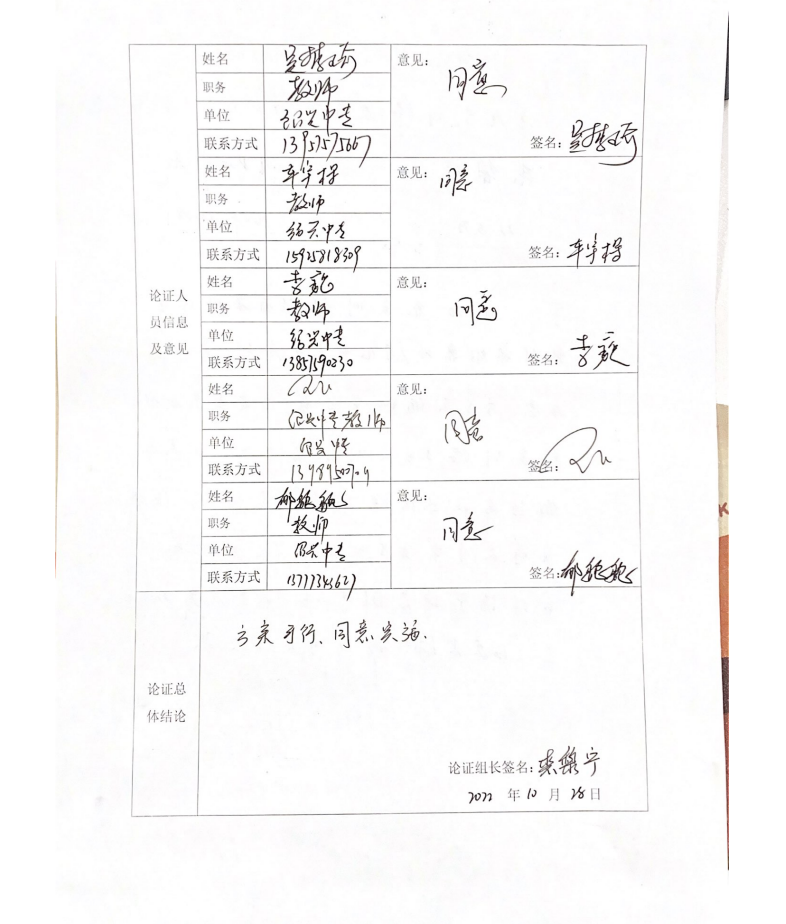 姓名
意见：
同意
职务 教师
单位 绍兴中专
联系方式 13957575667
签名：
姓名 车宇探
意见：
同意
职务 教师
单位 绍兴中专
联系方式 15925818309
签名：车宇探
论证人
员信息
及意见
姓名 李
意见：
同意
职务 教师
单位 绍兴中专
联系方式 13857590230
签名：李
姓名
意见：
同意
职务 绍兴中专教师
单位 绍兴中专
联系方式
签名：
姓名 郁
意见：
同意
职务 教师
单位 绍兴中专
联系方式 13777343627
签名：郁
方案可行、同意实施.
论证总
体结论
论证组长签名：
2022 年 10 月 28 日